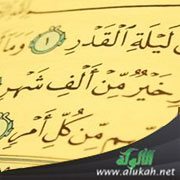 لَيْلَةِ ٱلْقَدْرِ ١ وَمَا
خَيْرٌ مِّنْ أَلْفِ شَهْرٍ
مِّن كُلِّ أَمْرٍ ٤
الألوكة
www.alukah.net